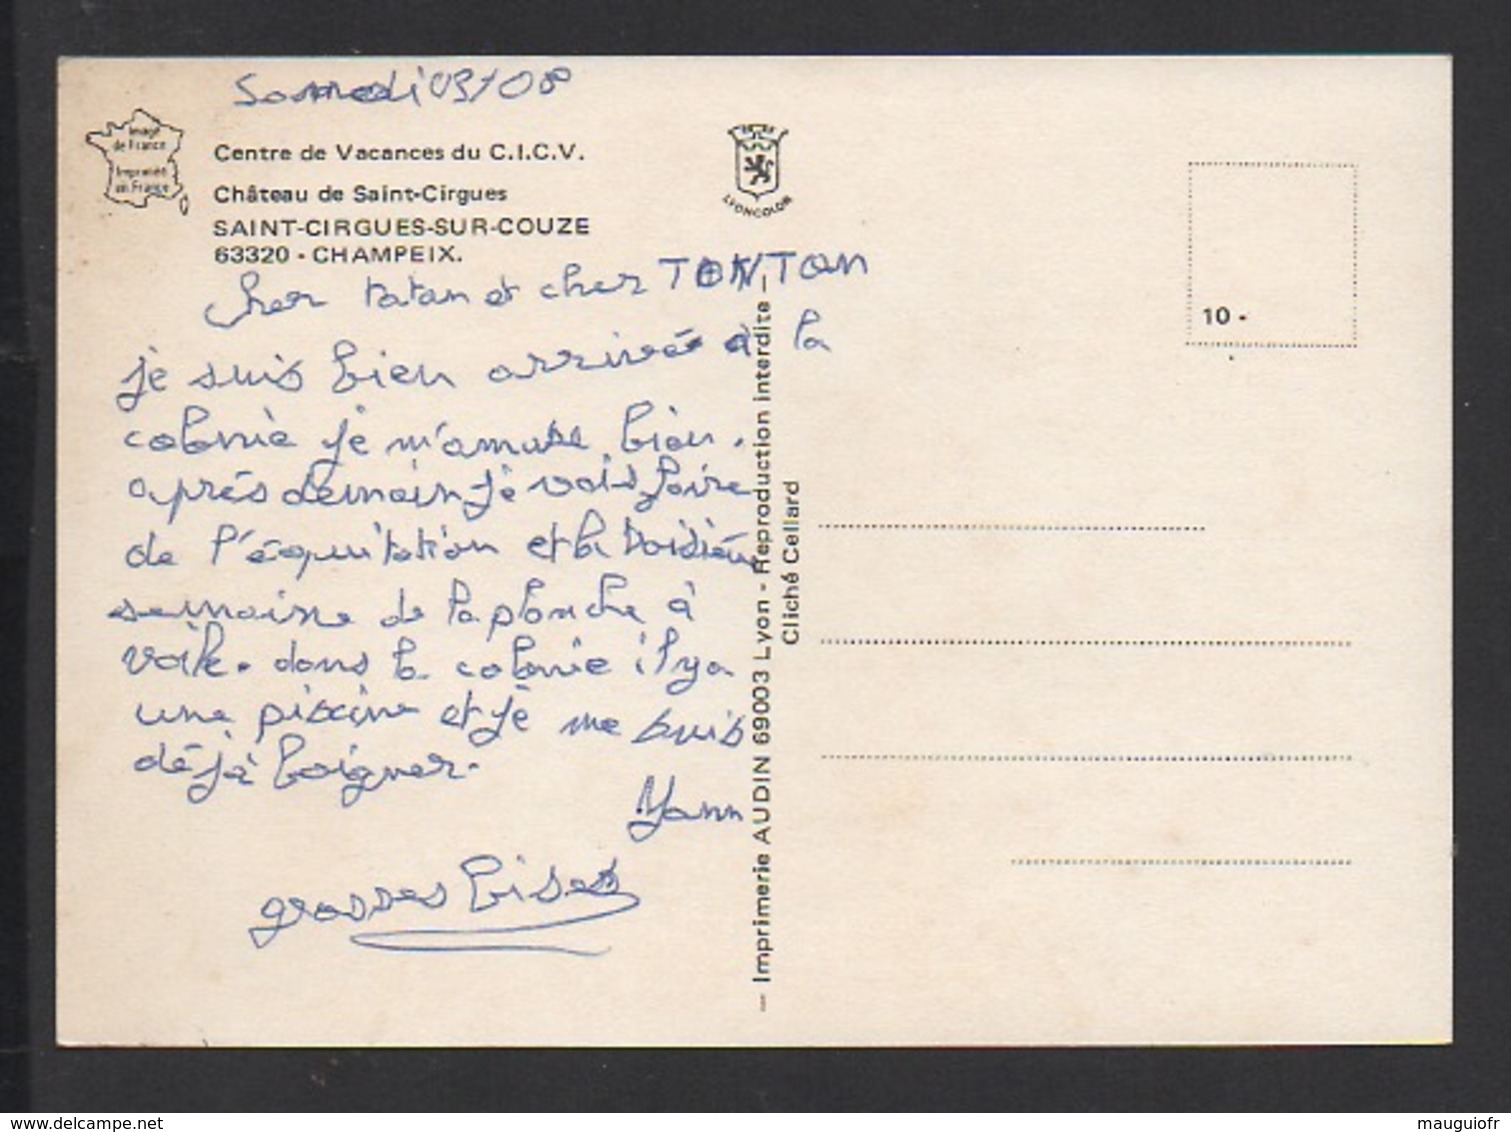 Samedi 03/08
Image
de France
Imprimé
en France
Centre de Vacances du C.I.C.V.
Château de Saint-Cirgues
SAINT-CIRGUES-SUR-COUZE
63320 - CHAMPEIX.
LYONCOLOR
10 -
cher tatan et cher TONTON
je suis bien arrivé à la
colonie je m'amuse bien.
après demain je vais faire
de l'équitation et la troisième
semaine de la planche à
voile. dans la colonie il y a
une piscine et je me suis
déjà baigner.
Yann
grosses bises
— Imprimerie AUDIN 69003 Lyon - Reproduction interdite —
Cliché Cellard
mauguiofr